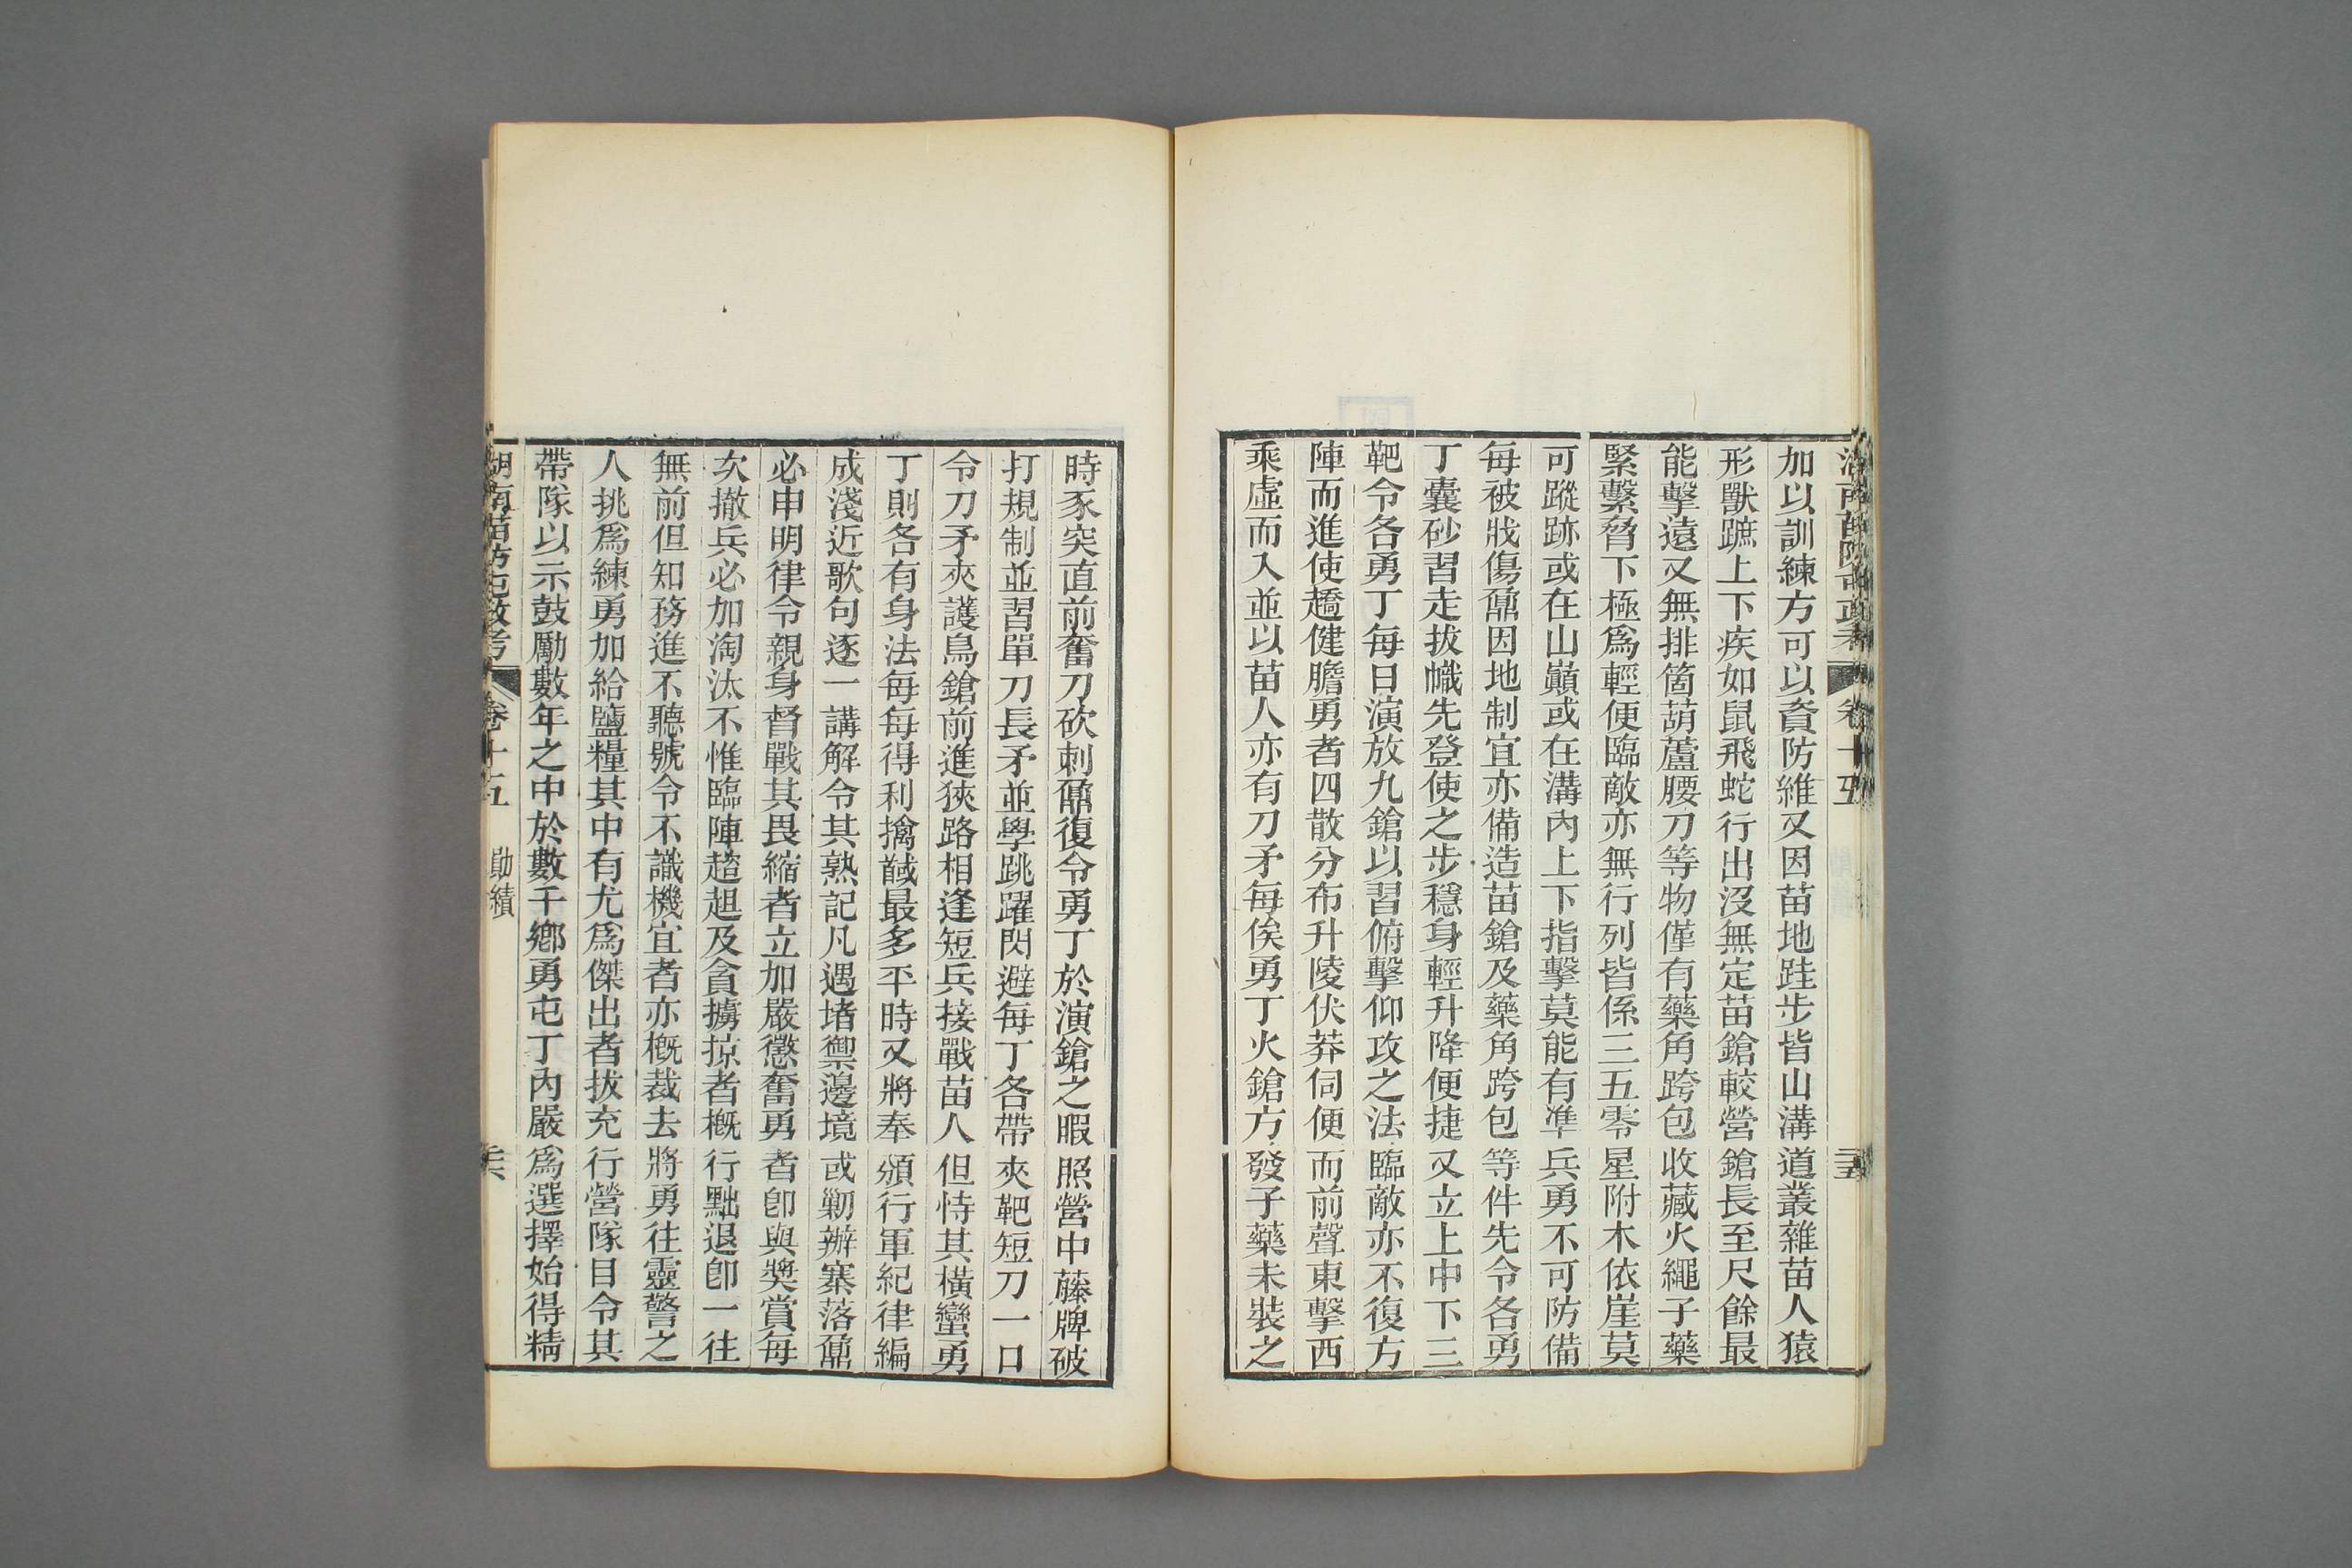 湖南苗防屯政考 卷十五 二十五
加以訓練方可以資防維又因苗地跬步皆山溝道叢雜苗人猿
形獸蹠上下疾如鼠飛蛇行出沒無定苗鎗較營鎗長至尺餘最
能擊遠又無排箇葫蘆腰刀等物僅有藥角跨包收藏火繩子藥
緊繫脅下極爲輕便臨敵亦無行列皆係三五零星附木依崖莫
可蹤跡或在山巓或在溝內上下指擊莫能有準兵勇不可防備
每被戕傷鼐因地制宜亦備造苗鎗及藥角跨包等件先令各勇
丁囊砂習走拔幟先登使之步穩身輕升降便捷又立上中下三
靶令各勇丁每日演放九鎗以習俯擊仰攻之法臨敵亦不復方
陣而進使趫健膽勇者四散分布升陵伏莽伺便而前聲東擊西
乘虛而入並以苗人亦有刀矛每俟勇丁火鎗方發子藥未裝之
時豕突直前奮刀砍刺鼐復令勇丁於演鎗之暇照營中藤牌破
打規制並習單刀長矛並學跳躍閃避每丁各帶夾靶短刀一口
令刀矛夾護鳥鎗前進狹路相逢短兵接戰苗人但恃其橫蠻勇
丁則各有身法每每得利擒馘最多平時又將奉頒行軍紀律編
成淺近歌句逐一講解令其熟記凡遇堵禦邊境或勦辦寨落鼐
必申明律令親身督戰其畏縮者立加嚴懲奮勇者卽與獎賞每
次撤兵必加淘汰不惟臨陣趦趄及貪擄掠者槪行黜退卽一往
無前但知務進不聽號令不識機宜者亦槪裁去將勇往靈警之
人挑爲練勇加給鹽糧其中有尤爲傑出者拔充行營隊目令其
帶隊以示鼓勵數年之中於數千鄕勇屯丁內嚴爲選擇始得精
湖南苗防屯政考 卷十五 勛績 二十六